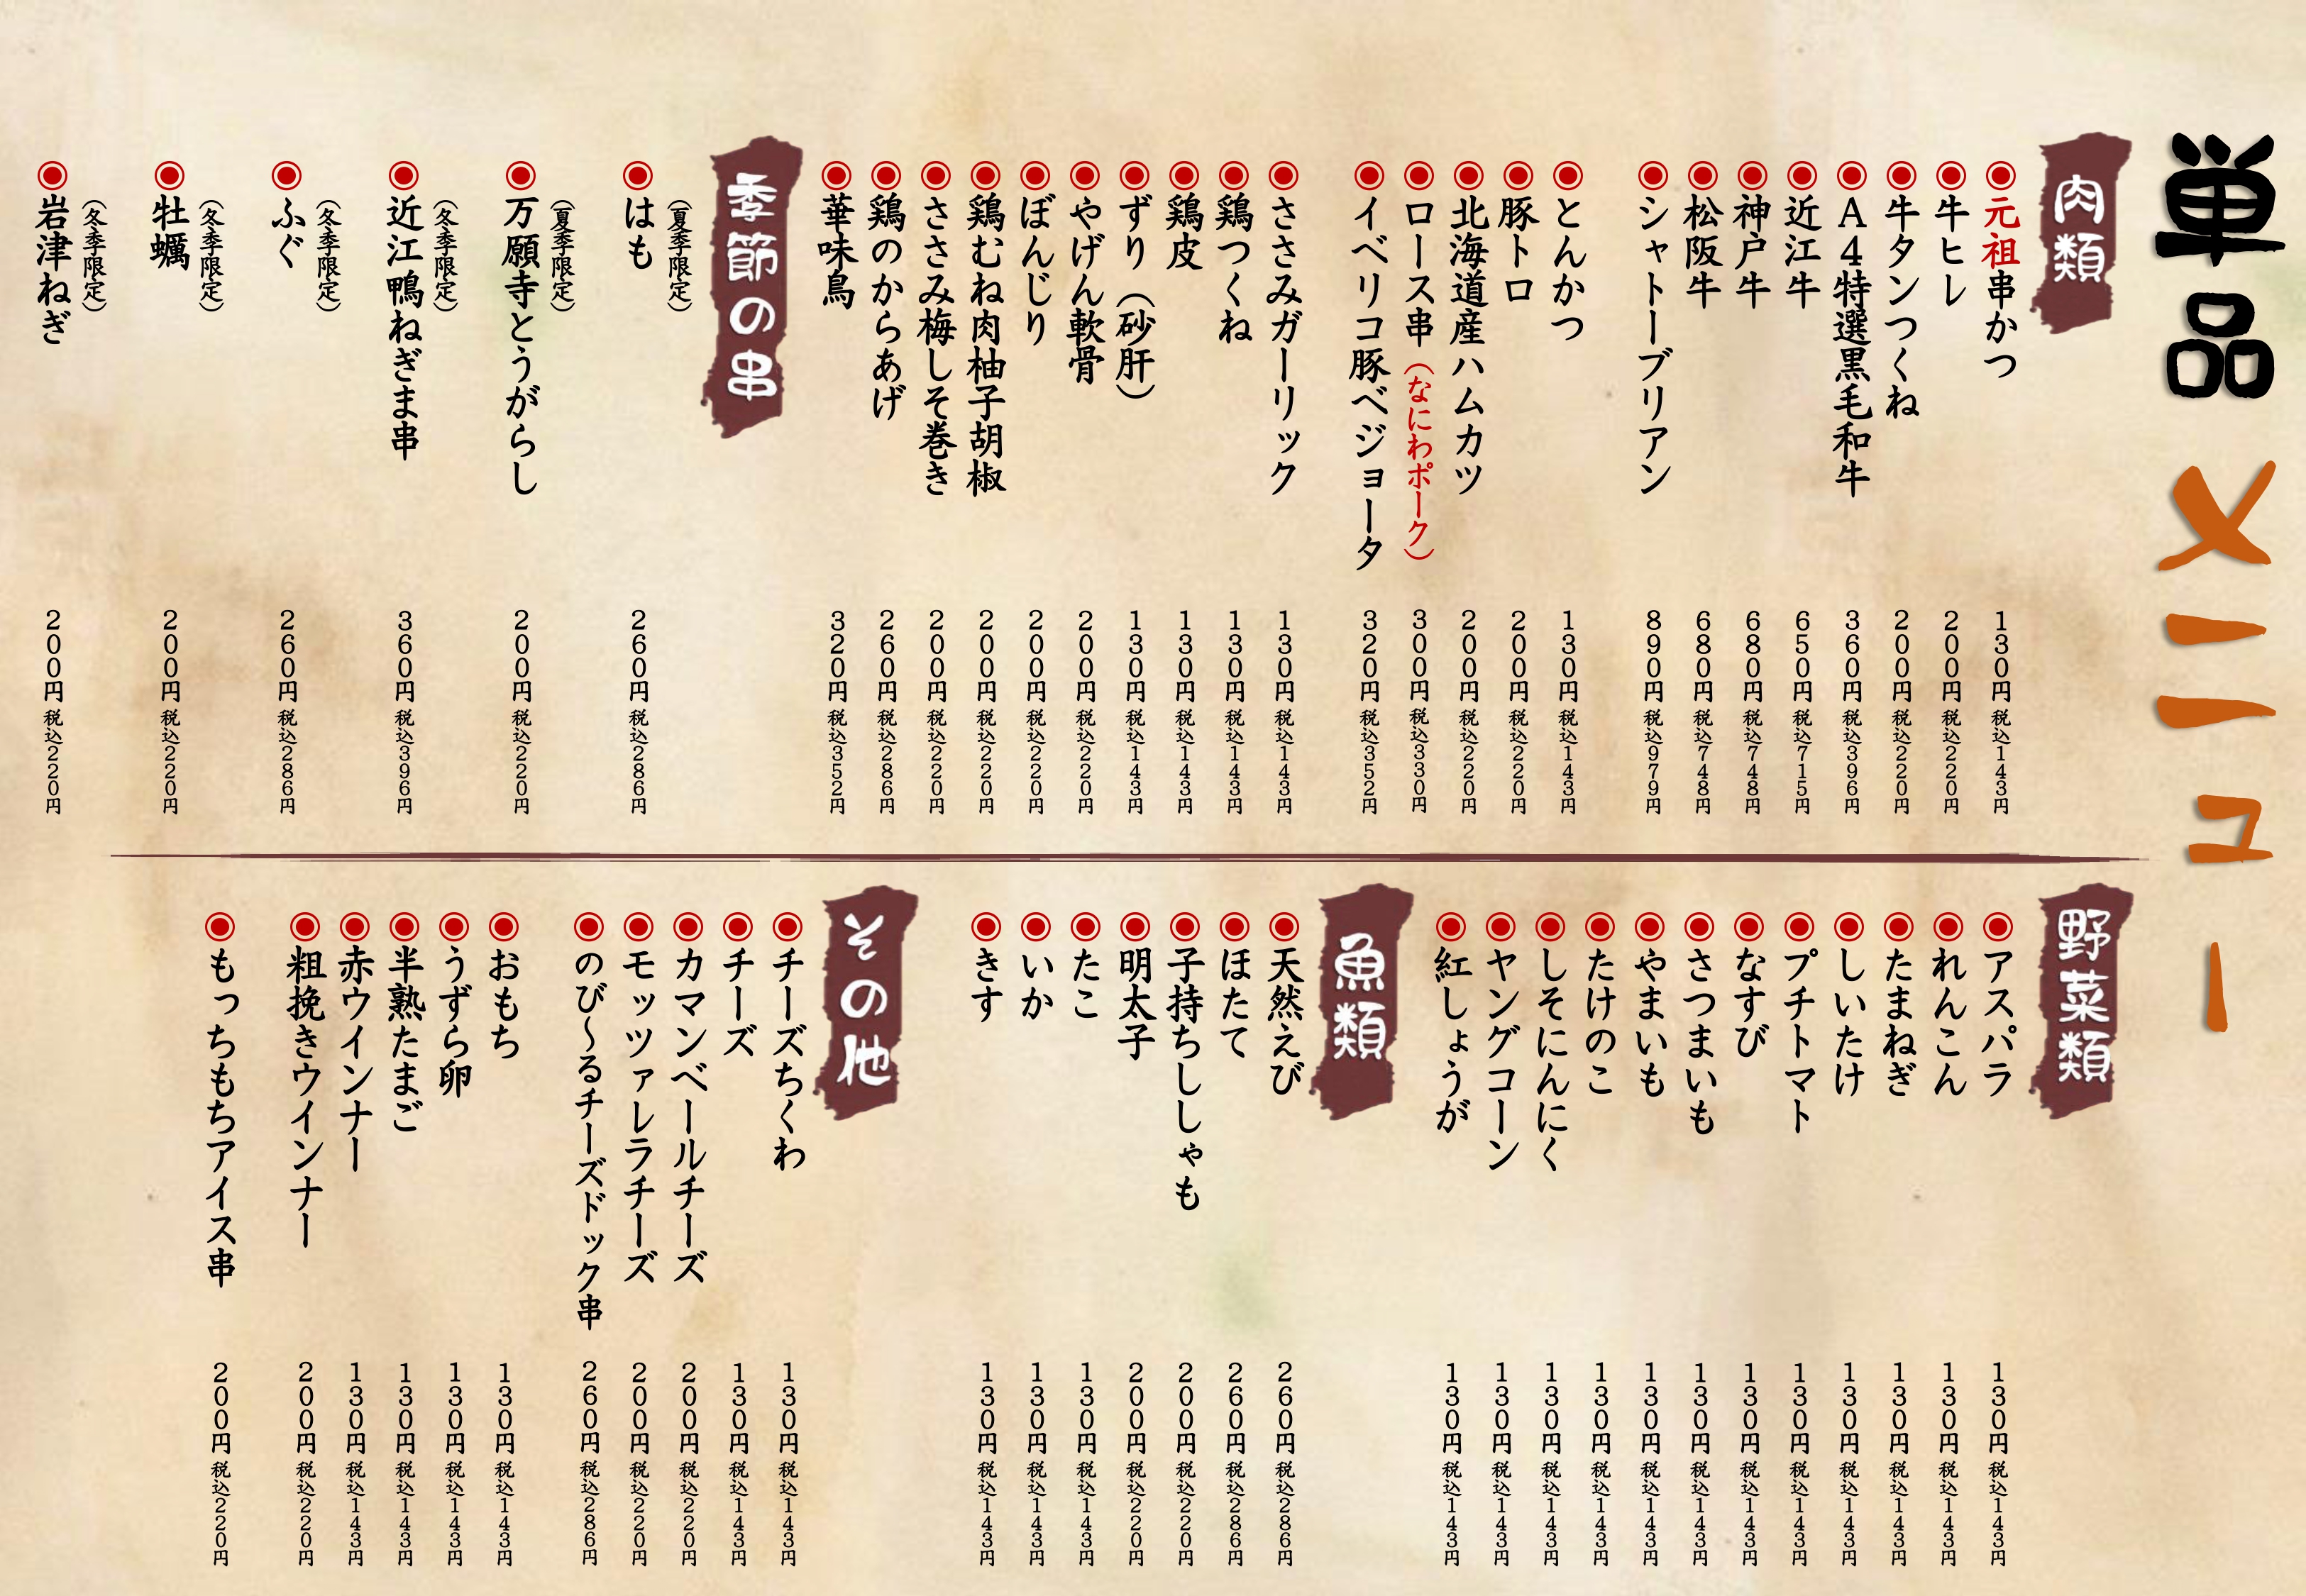 単品メニュー
肉類
元祖串かつ 130円 税込143円
牛ヒレ 200円 税込220円
牛タンつくね 200円 税込220円
A4特選黒毛和牛 360円 税込396円
近江牛 650円 税込715円
神戸牛 680円 税込748円
松阪牛 680円 税込748円
シャトーブリアン 890円 税込979円
とんかつ 130円 税込143円
豚トロ 200円 税込220円
北海道産ハムカツ 200円 税込220円
ロース串(なにわポーク) 300円 税込330円
イベリコ豚ベジョータ 320円 税込352円
ささみガーリック 130円 税込143円
鶏つくね 130円 税込143円
鶏皮 130円 税込143円
ずり(砂肝) 130円 税込143円
やげん軟骨 200円 税込220円
ぼんじり 200円 税込220円
鶏むね肉柚子胡椒 200円 税込220円
ささみ梅しそ巻き 200円 税込220円
鶏のからあげ 260円 税込286円
華味鳥 320円 税込352円
季節の串
(夏季限定)
はも 260円 税込286円
(夏季限定)
万願寺とうがらし 200円 税込220円
(冬季限定)
近江鴨ねぎま串 360円 税込396円
(冬季限定)
ふぐ 260円 税込286円
(冬季限定)
牡蠣 200円 税込220円
(冬季限定)
岩津ねぎ 200円 税込220円
野菜類
アスパラ 130円 税込143円
れんこん 130円 税込143円
たまねぎ 130円 税込143円
しいたけ 130円 税込143円
プチトマト 130円 税込143円
なすび 130円 税込143円
さつまいも 130円 税込143円
やまいも 130円 税込143円
たけのこ 130円 税込143円
しそにんにく 130円 税込143円
ヤングコーン 130円 税込143円
紅しょうが 130円 税込143円
魚類
天然えび 260円 税込286円
ほたて 260円 税込286円
子持ちししゃも 200円 税込220円
明太子 200円 税込220円
たこ 130円 税込143円
いか 130円 税込143円
きす 130円 税込143円
その他
チーズちくわ 130円 税込143円
チーズ 130円 税込143円
カマンベールチーズ 200円 税込220円
モッツァレラチーズ 200円 税込220円
のび～るチーズドック串 260円 税込286円
おもち 130円 税込143円
うずら卵 130円 税込143円
半熟たまご 130円 税込143円
赤ウインナー 130円 税込143円
粗挽きウインナー 200円 税込220円
もっちもちアイス串 200円 税込220円